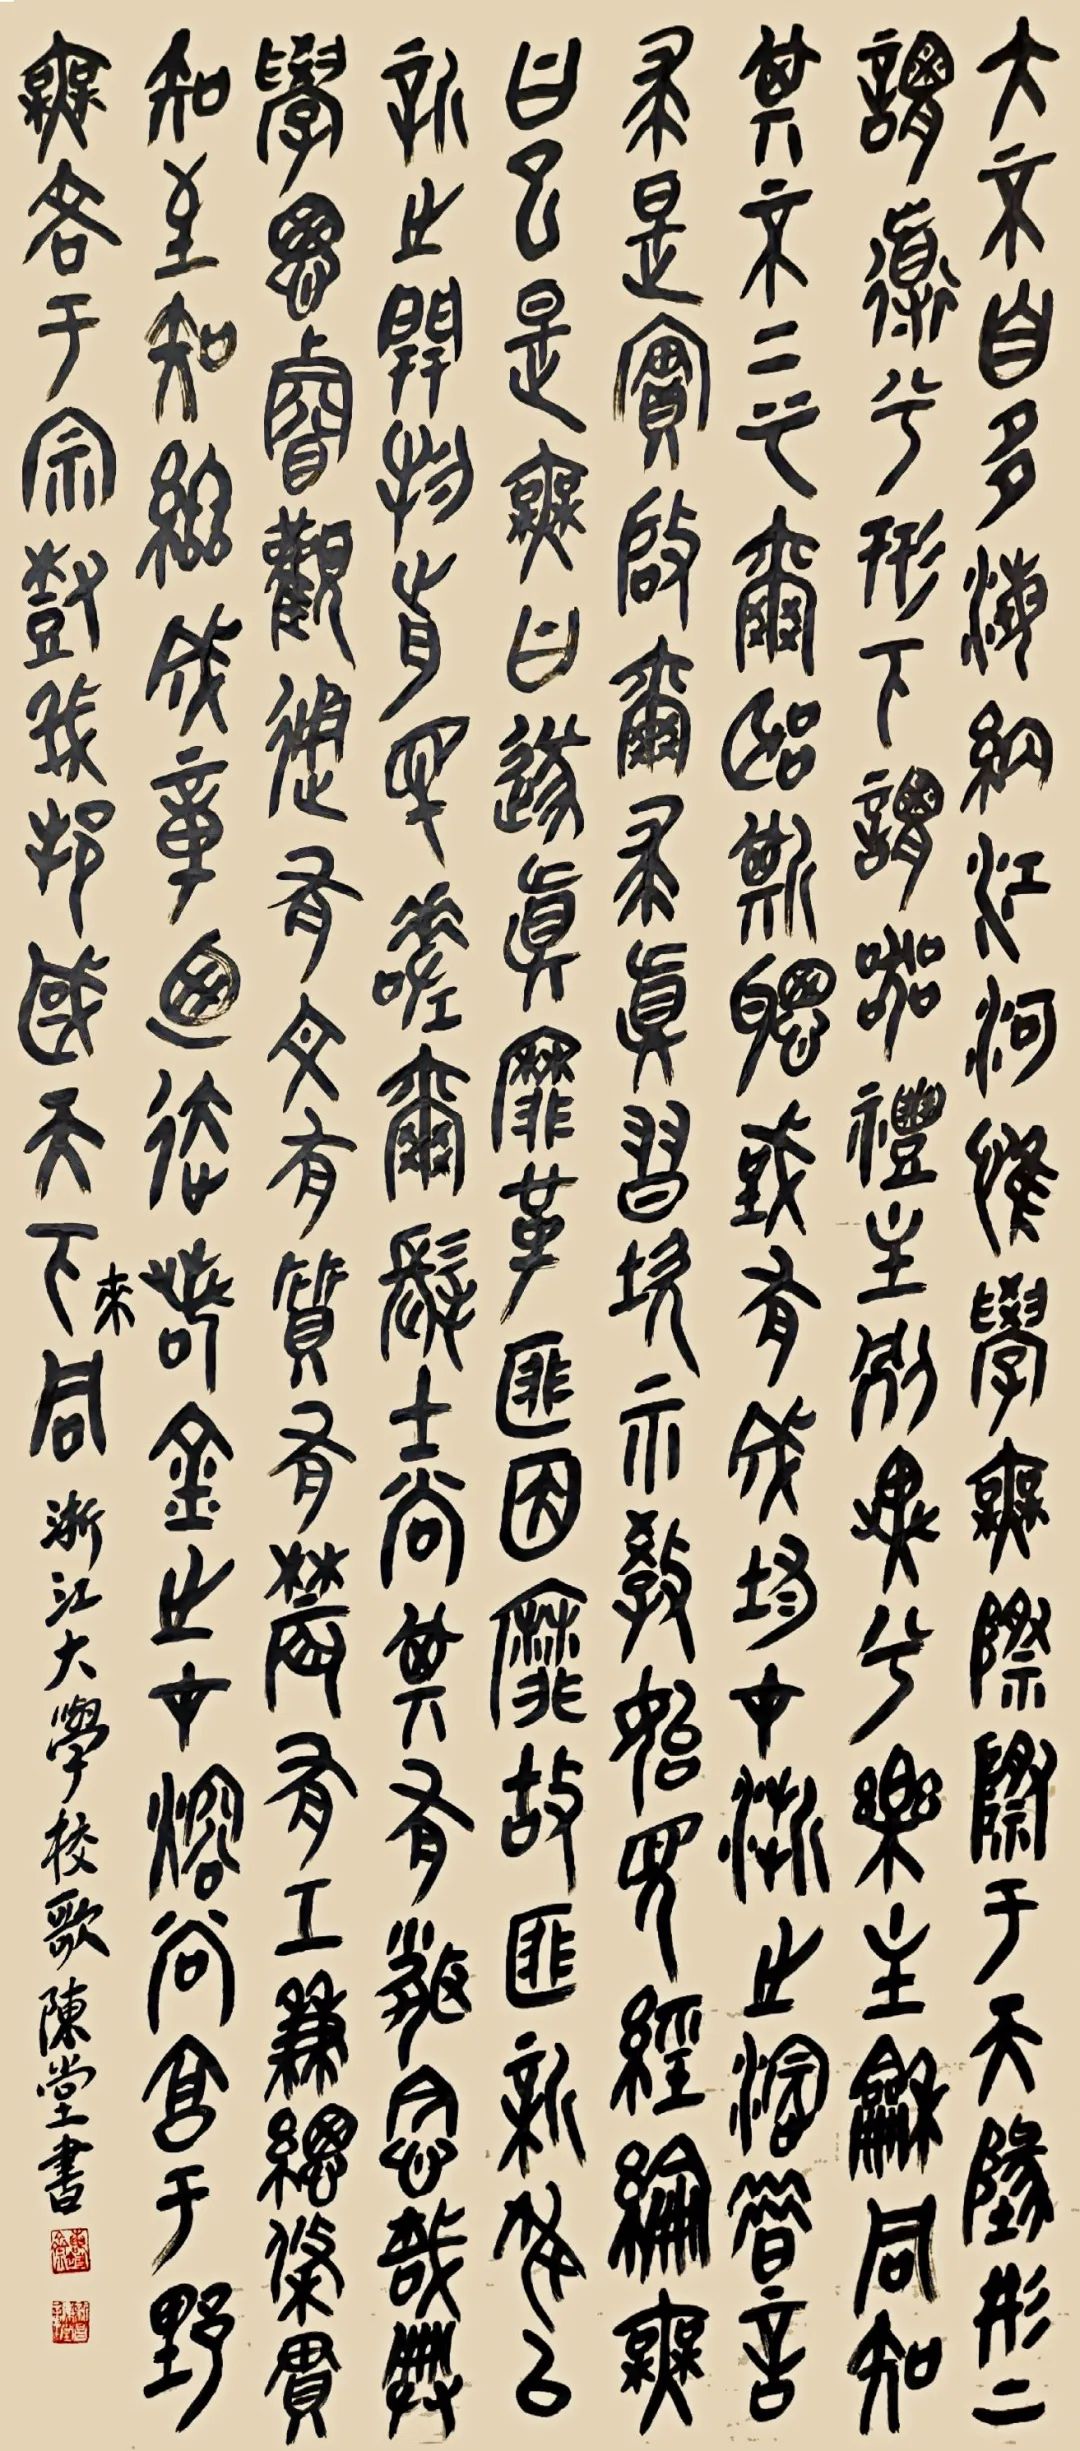 大不自多海納江河惟學無際際于天地形上
謂道兮形下謂器禮主別異兮樂主龢同知
其不二兮爾聽斯聰國有成均在浙之濱昔言
求是實啟爾求真習坎示教始見經綸無
曰已是無曰遂真靡革匪因靡故匪新何以
新之開物前民嗟爾髦士尚其有聞念哉典
學思睿觀通有文有質有農有工兼總條貫
知至知終成章乃達若金之在熔尚亨于野
無吝于宗樹我邦國天下來同
浙江大學校歌陳堂書